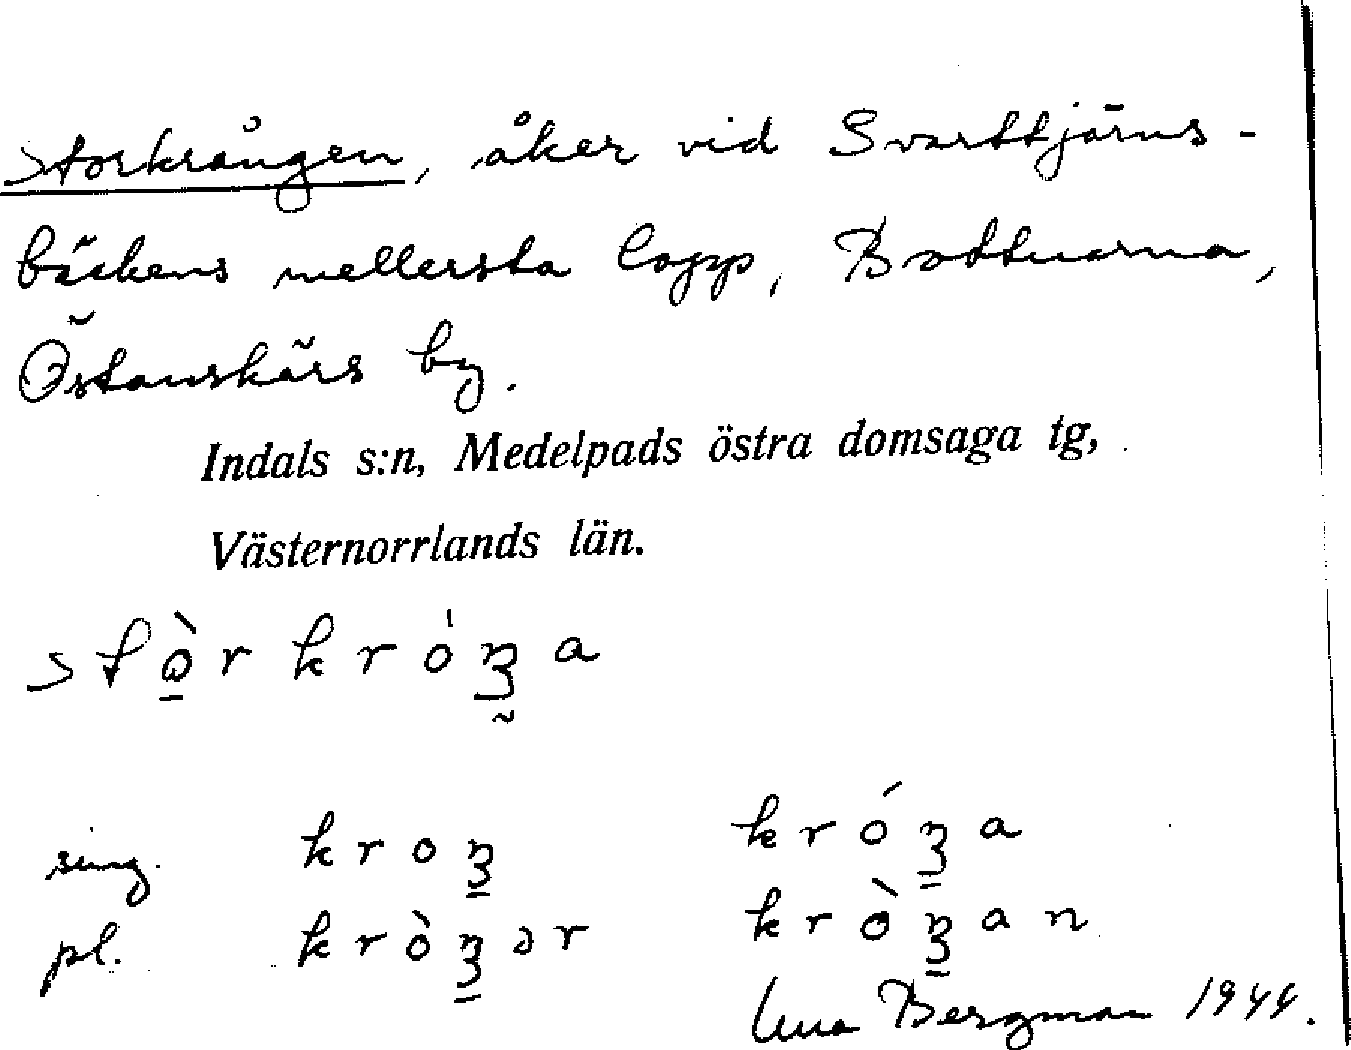 Storkrången, åker vid Svarttjärns-
bäckens mellersta lopp, Bottnarna,
Östanskärs by.
Indals s:n, Medelpads östra domsaga tg,
Västernorrlands län.
sing. kroŋ króŋa
pl. kròŋər kròŋan
Bergman 1944.